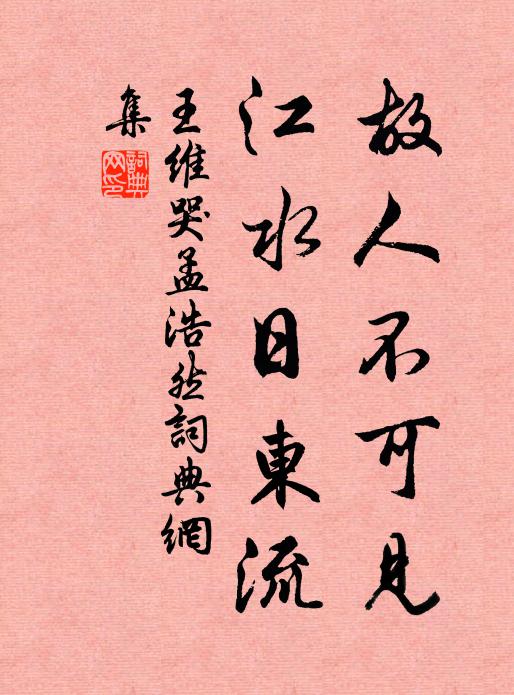 故人不可見
江水日東流
王維哭孟浩然詞典網
集
詞典
网印